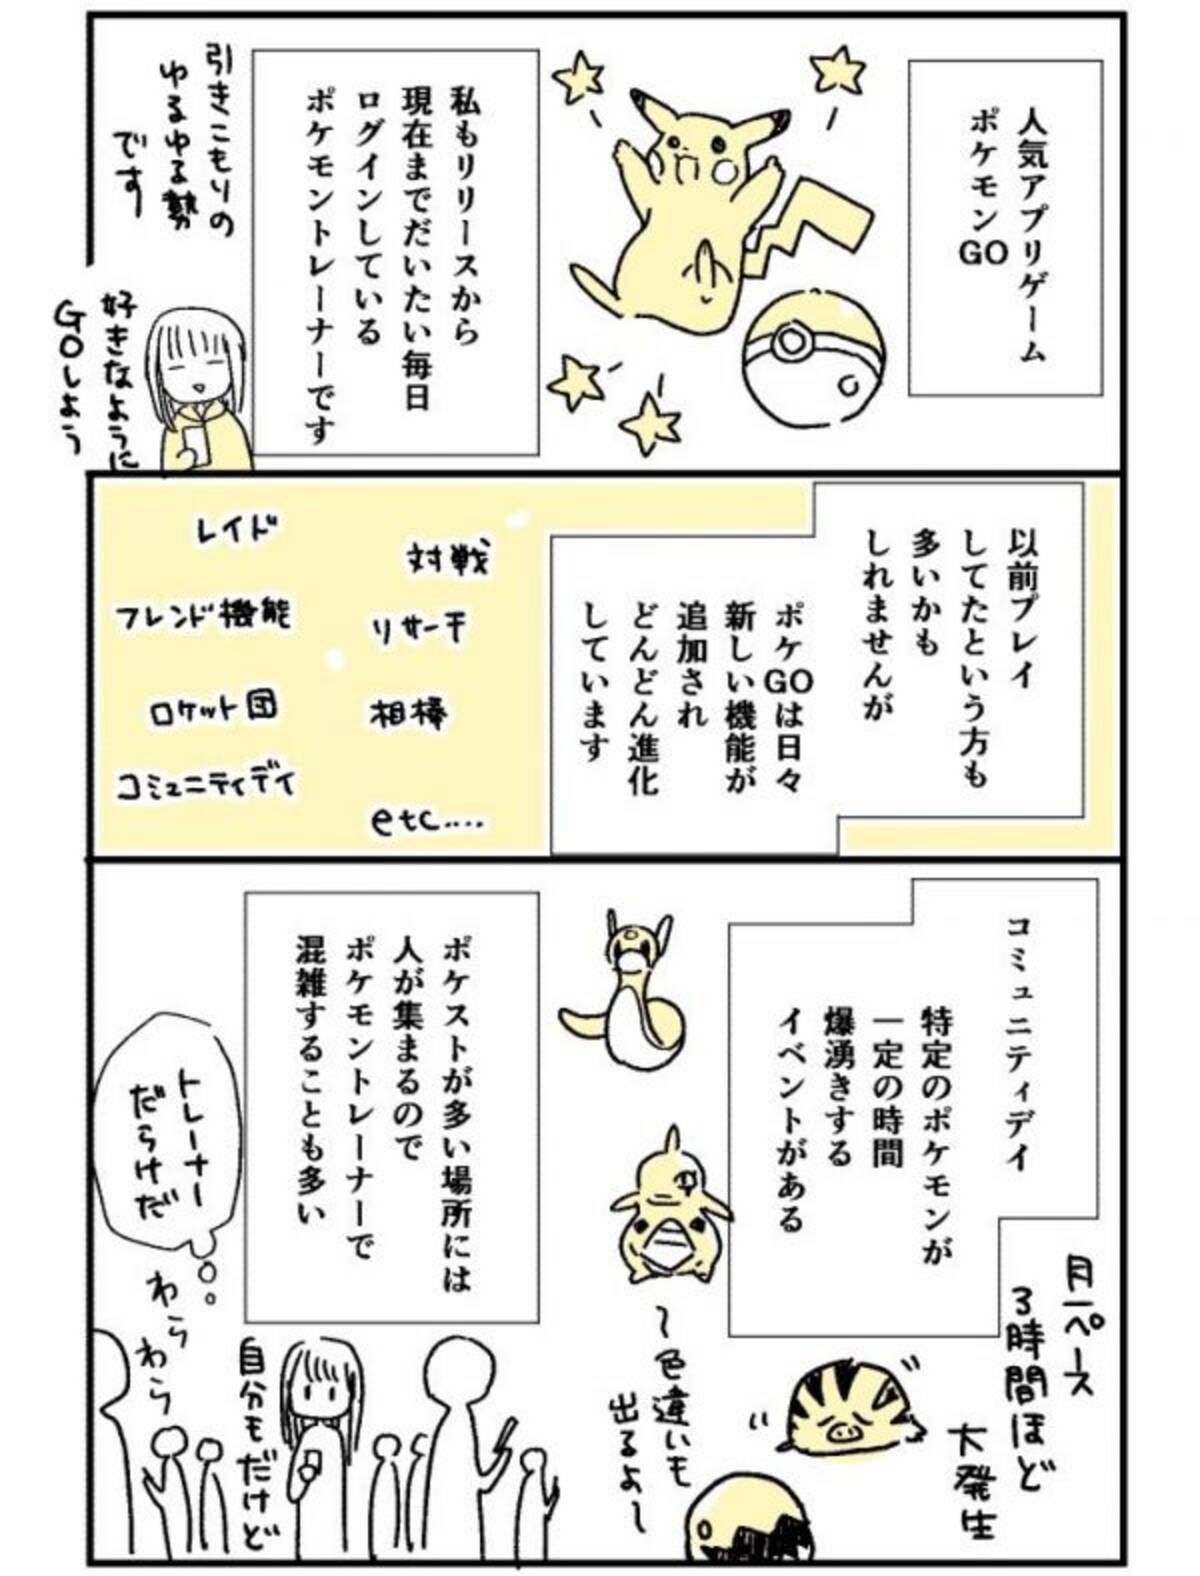 人気アプリゲーム
ポケモンGO
私もリリースから
現在までだいたい毎日
ログインしている
ポケモントレーナーです
引きこもりの
ゆるゆる勢
です
好きなように
GOしよう
以前プレイ
してたという方も
多いかも
しれませんが
ポケGOは日々
新しい機能が
追加され
どんどん進化
しています
対戦
リサーチ
相棒
etc....
レイド
フレンド機能
ロケット団
コミュニティデイ
コミュニティデイ
特定のポケモンが
一定の時間
爆湧きする
イベントがある
月一ペース
3時間ほど
大発生
〜色違いも
出るよ〜
ポケストが多い場所には
人が集まるので
ポケモントレーナーで
混雑することも多い
トレーナー
だらけだ
わら
わら
自分もだけど